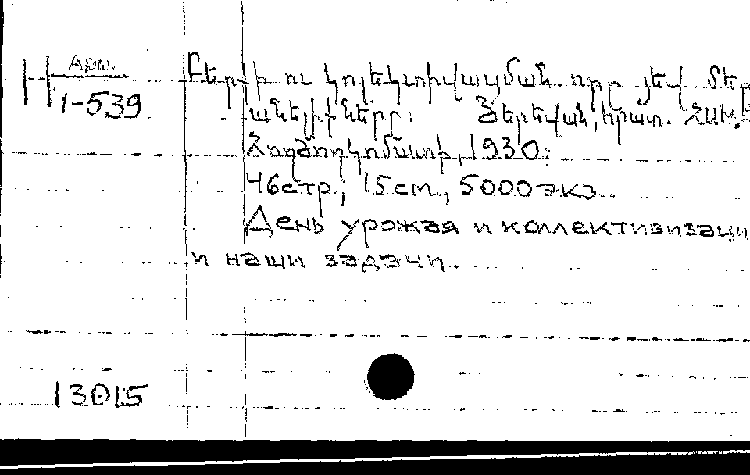 Арм.
1-539
Բերքի ու կոլեկտիվացման օրը յեվ մեր
անելիքները: Յերեվան, հրատ. ՀԱԽՀ
Հողժողկոմատի, 1930:
46стр.; 15см., 5000экз.
День урожая и коллективизаци
и наши задачи.
13015